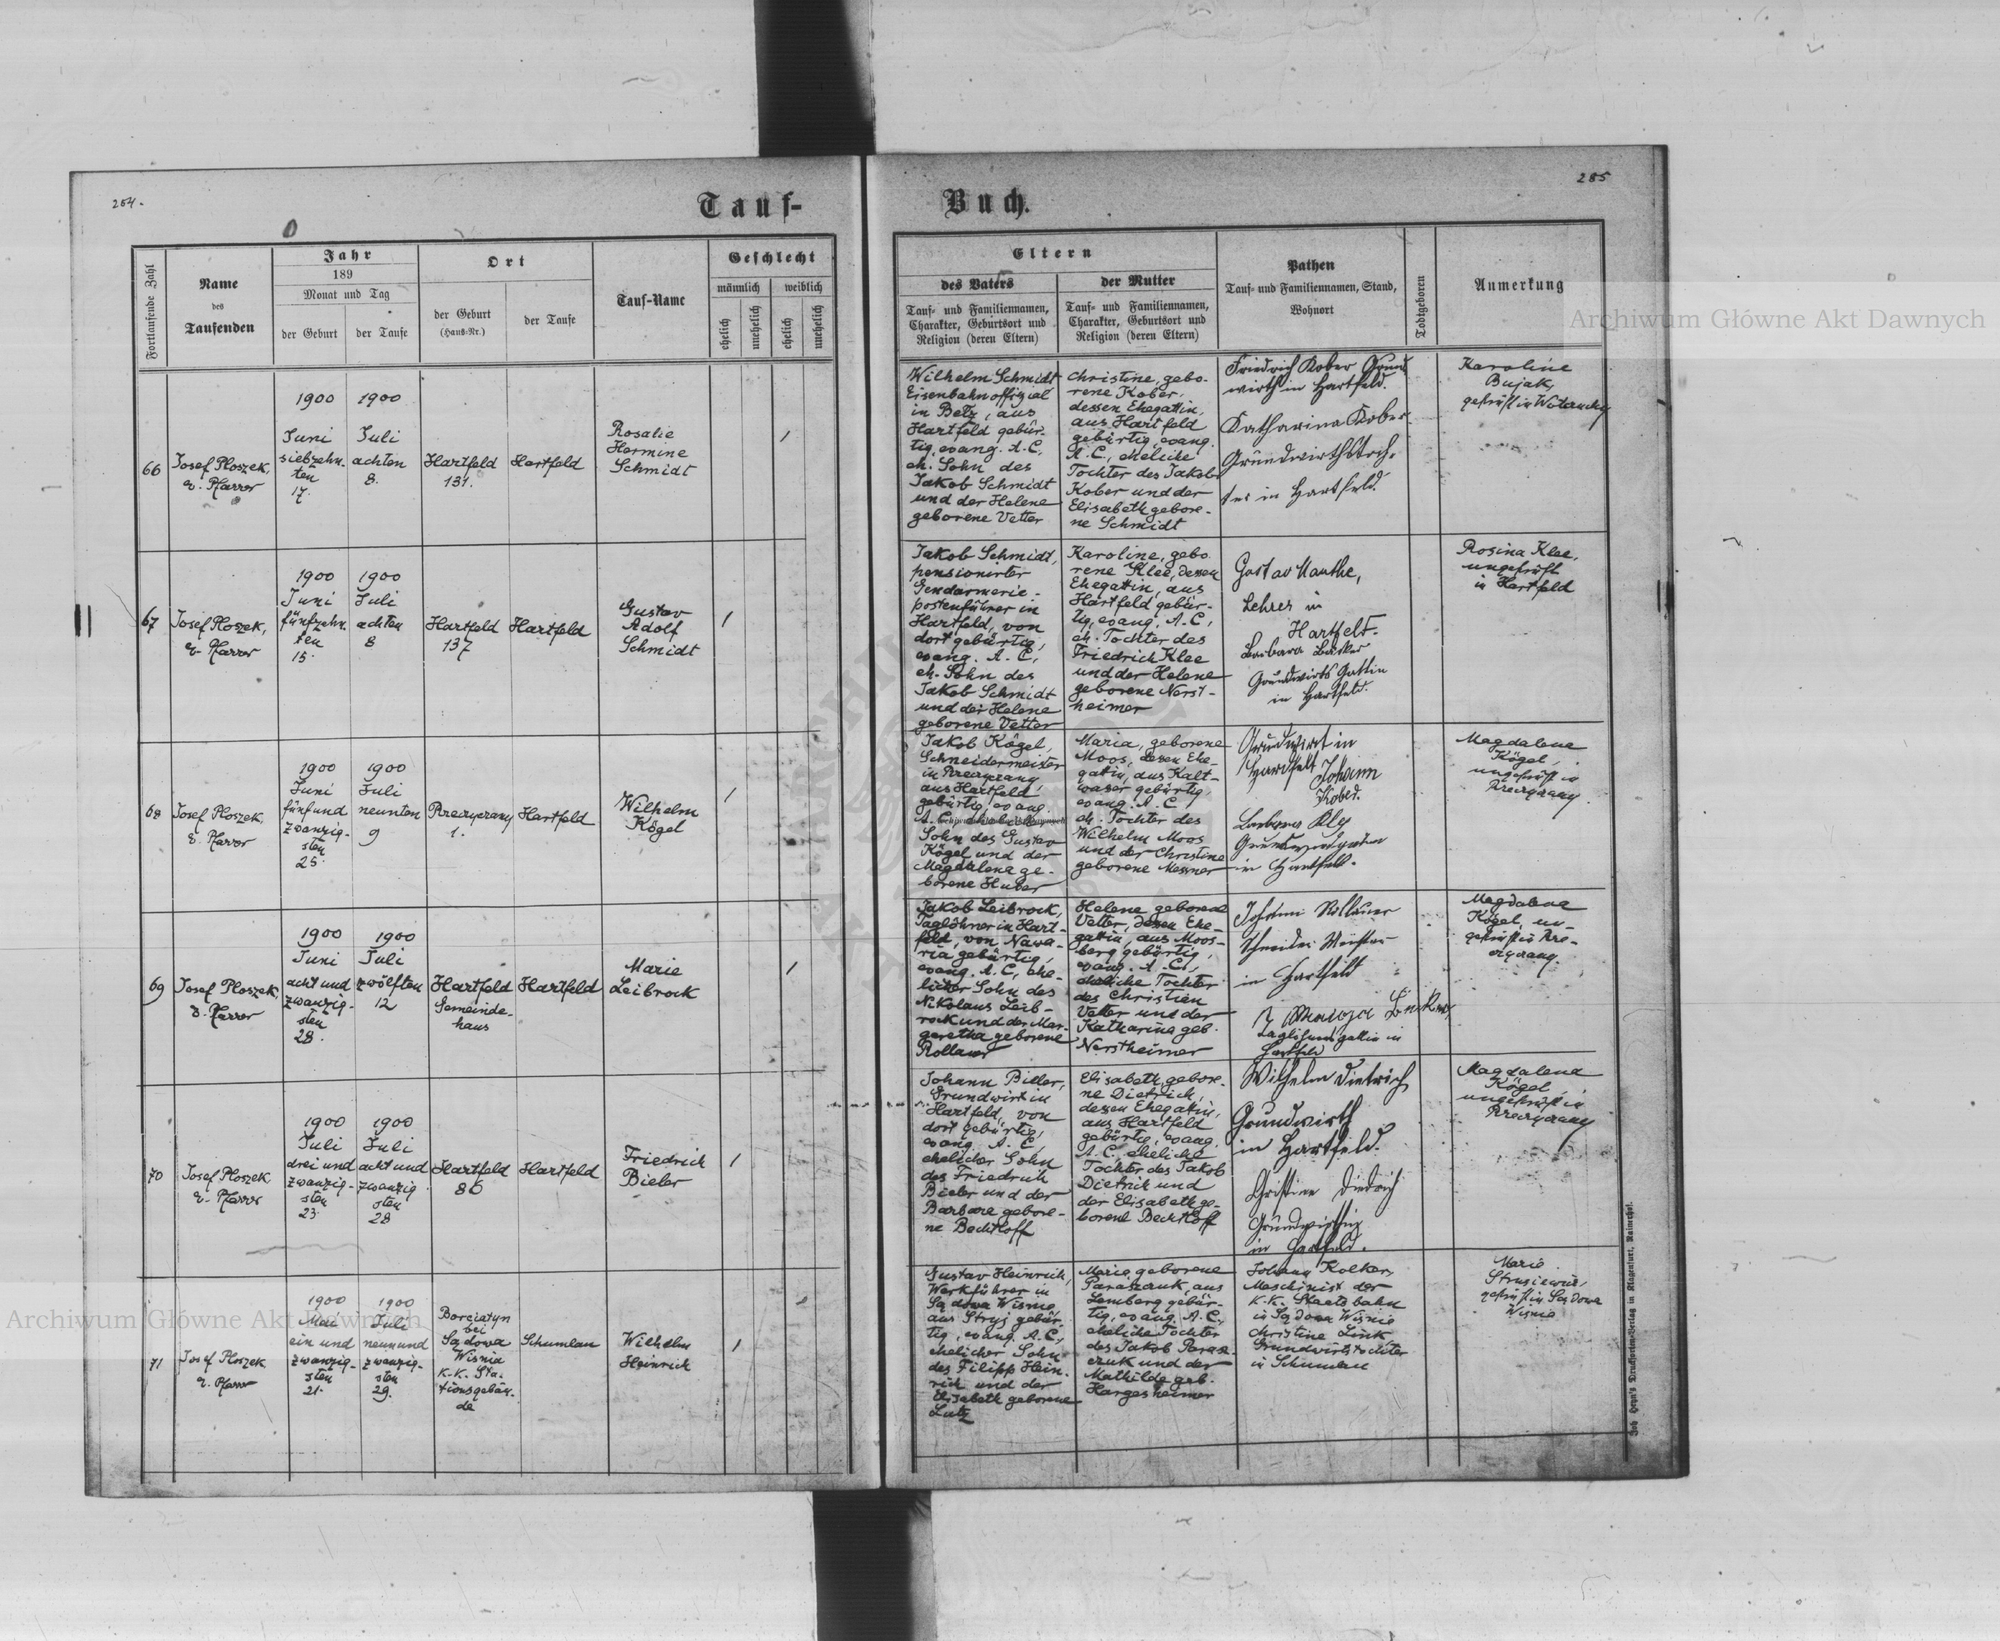 284.
285
Tauf-
Buch.
Fortlaufende Zahl
Name
des
Taufenden
Jahr
189
Monat und Tag
der Geburt
der Taufe
Ort
der Geburt
(Haus-Nr.)
der Taufe
Tauf-Name
Geschlecht
männlich
weiblich
ehelich
unehelich
ehelich
unehelich
Eltern
des Vaters
Tauf- und Familiennamen,
Charakter, Geburtsort und
Religion (deren Eltern)
der Mutter
Tauf- und Familiennamen,
Charakter, Geburtsort und
Religion (deren Eltern)
Pathen
Tauf- und Familiennamen, Stand,
Wohnort
Todtgeboren
Anmerkung
Archiwum Główne Akt Dawnych
66
Josef Ploszek,
ev. Pfarrer
1900
Juni
siebzehn-
ten
17.
1900
Juli
achten
8.
Hartfeld
131.
Hartfeld
Rosalie
Hermine
Schmidt
/
Wilhelm Schmidt
Eisenbahnoffizial
in Belz, aus
Hartfeld gebür-
tig, evang. A.C.,
eh. Sohn des
Jakob Schmidt
und der Helene
geborene Vetter
Christine, gebo-
rene Kober,
dessen Ehegattin,
aus Hartfeld
gebürtig, evang.
A.C., eheliche
Tochter des Jakob
Kober und der
Elisabeth gebore-
ne Schmidt
Friedrich Kober Grund
wirth in Hartfeld.
Katharina Kober
Grundwirthstoch-
ter in Hartfeld.
Karoline
Bujak,
geprüft in
67
Josef Ploszek,
ev. Pfarrer
1900
Juni
fünfzehn-
ten
15.
1900
Juli
achten
8
Hartfeld
137
Hartfeld
Gustav
Adolf
Schmidt
/
Jakob Schmidt,
pensionirter
Gendarmerie-
postenführer in
Hartfeld, von
dort gebürtig,
evang. A.C.,
eh. Sohn des
Jakob Schmidt
und der Helene
geborene Vetter
Karoline, gebo
rene Klee, dessen
Ehegattin, aus
Hartfeld gebür-
tig, evang. A.C.,
eh. Tochter des
Friedrich Klee
und der Helene
geborene Nerst-
heimer
Gustav Manthe,
Lehrer in
Hartfeld.
Barbara
Grundwirts Gattin
in Hartfeld.
Rosina Klee,
ungeprüft
in Hartfeld
68
Josef Ploszek,
ev. Pfarrer
1900
Juni
fünf und
zwanzig-
sten
25.
1900
Juli
neunten
9
Przeyczany
1.
Hartfeld
Wilhelm
Kögel
/
Jakob Kögel,
Schneidermeister
in
aus Hartfeld,
gebürtig, evang.
A.C., ehelicher
Sohn des Gustav
Kögel und der
Magdalena ge-
borene Huber
Maria, geborene
Moos, dessen Ehe-
gattin, aus Kalt-
waser gebürtig,
evang. A.C.,
eh. Tochter des
Wilhelm Moos
und der Christine
geborene Messner
Grundwirt in
Hardfelt Johann
Kober.
Barbara Kly
in Hartfeld.
Magdalena
Kögel,
ungeprüft in
69
Josef Ploszek,
ev. Pfarrer
1900
Juni
acht und
zwanzig-
sten
28.
1900
Juli
zwölften
12
Hartfeld
Gemeinde-
haus
Hartfeld
Marie
Leibrock
/
Jakob Leibrock,
Taglöhner in Hart-
feld, von Nawa-
ria gebürtig,
evang. A.C., ehe-
licher Sohn des
Nikolaus Leib-
rock und der Mar-
garetha geborene
Rollauer
Helene geborene
Vetter, dessen Ehe-
gattin, aus Moos-
berg gebürtig,
evang. A.C.,
eheliche Tochter
des Christian
Vetter und der
Katharina geb.
Nerstheimer
Johann Rollauer
Schneider Meister
in Hartfeld
Taglöhnersgattin in
Hartfeld
Magdalena
Kögel, un-
geprüft in
70
Josef Ploszek
ev. Pfarrer
1900
Juli
drei und
zwanzig-
sten
23.
1900
Juli
acht und
zwanzig
sten
28
Hartfeld
86
Hartfeld
Friedrich
Bieler
/
Johann Bieler,
Grundwirt in
Hartfeld, von
dort gebürtig,
evang. A.C.,
ehelicher Sohn
des Friedrich
Bieler und der
Barbara gebore-
ne Bechtloff
Elisabeth gebore-
ne Dietrich,
dessen Ehegattin,
aus Hartfeld
gebürtig, evang.
A.C., eheliche
Tochter des Jakob
Dietrich und
der Elisabeth ge-
borene Bechtloff
Wilhelm Dietrich
Grundwirth
in Hartfeld.
Christine Diedrich
Grundwirthin
in Hartfeld.
Magdalena
Kögel,
ungeprüft in
71
Josef Ploszek
ev. Pfarrer
1900
Mai
ein und
zwanzig-
sten
21.
1900
Juli
neun und
zwanzig-
sten
29.
Borciatyn
bei
Sądowa
Wisnia
K.K. Sta-
tionsgebäu-
de
Schumlau
Wilhelm
Heinrich
/
Gustav Heinrich,
Werkführer in
Sądowa Wisnia,
aus Stryj gebür-
tig, evang. A.C.,
ehelicher Sohn
des Filipp Hein-
rich und der
Elisabeth geborene
Lutz
Marie geborene
Paraszczuk, aus
Lemberg gebür-
tig, evang. A.C.,
eheliche Tochter
des Jakob Paras-
czuk und der
Mathilde geb.
Hargesheimer
Johann Kolker,
Maschinist der
K.K. Staatsbahn
in Sądowa Wisnia
Christine Link
Grundwirtstochter
in Schumlau
Marie
geprüft in Sądowa
Wisnia
Archiwum Główne Akt Dawnych
Joh. Heyn's Drucksorten-Verlag in Klagenfurt,